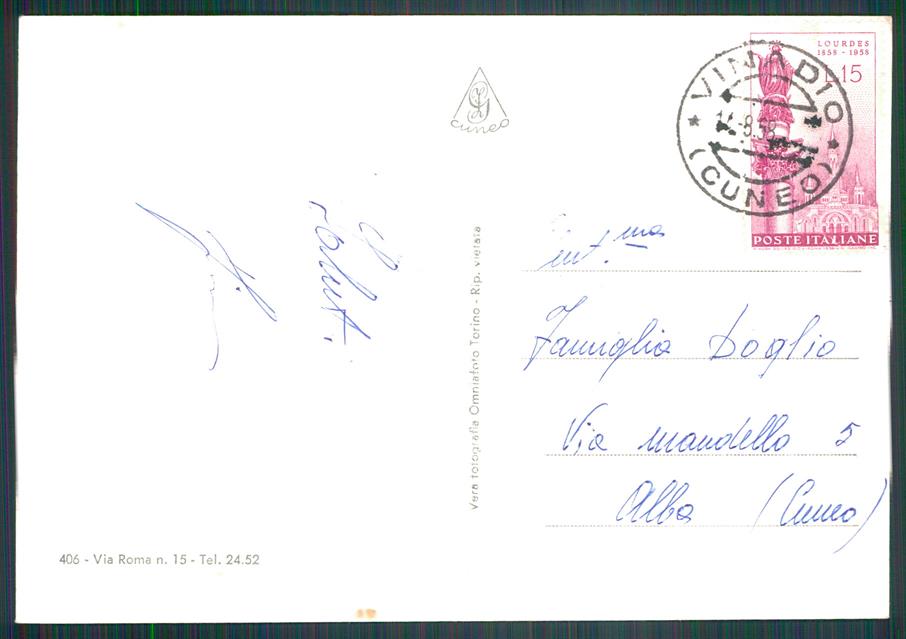 LOURDES
1858 - 1958
L.15
POSTE ITALIANE
VINADIO
(CUNEO)
Cuneo
Famiglia Doglio
Via Mandello 5
Alba (Cuneo)
Vera fotografia Omniafoto Torino - Rip. vietata
406 - Via Roma n. 15 - Tel. 24.52